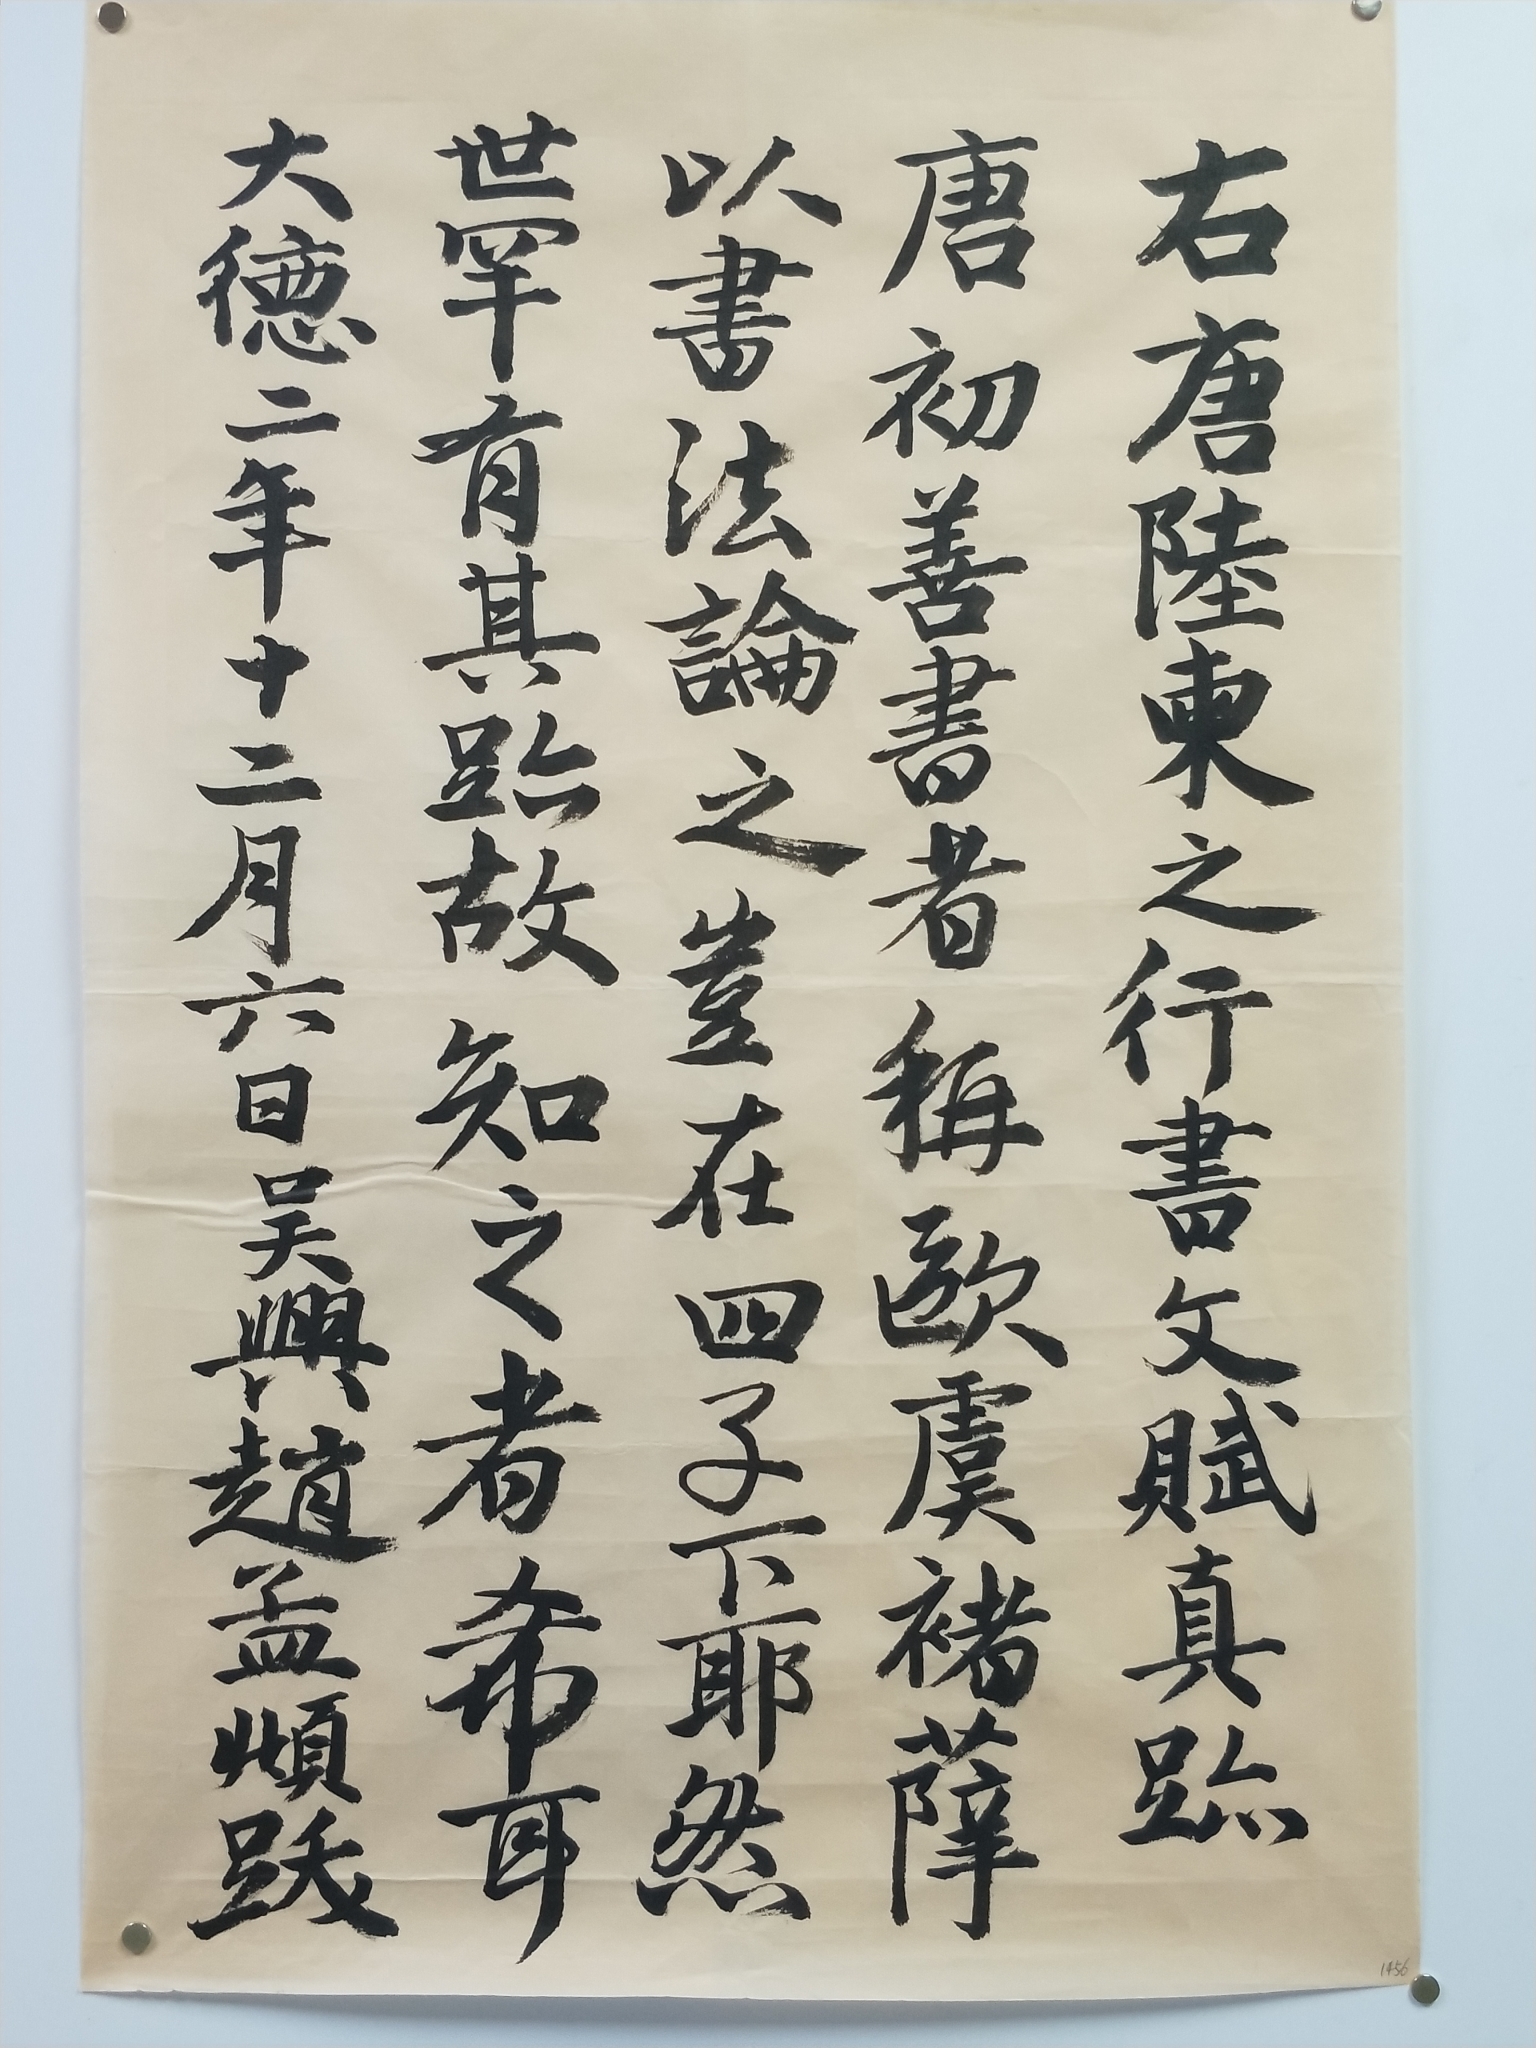 右唐陸柬之行書文賦真跡
唐初善書者稱歐虞褚薛
以書法論之豈在四子下耶然
世罕有其跡故知之者希耳
大德二年十二月六日吳興趙孟頫跋
1456